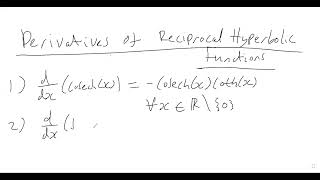 Derivatives of Reciprocal Hyperbolic
Functions
1) d/dx (cosech(x)) = -cosech(x)coth(x)
∀x ∈ ℝ\{0}
2) d/dx (s